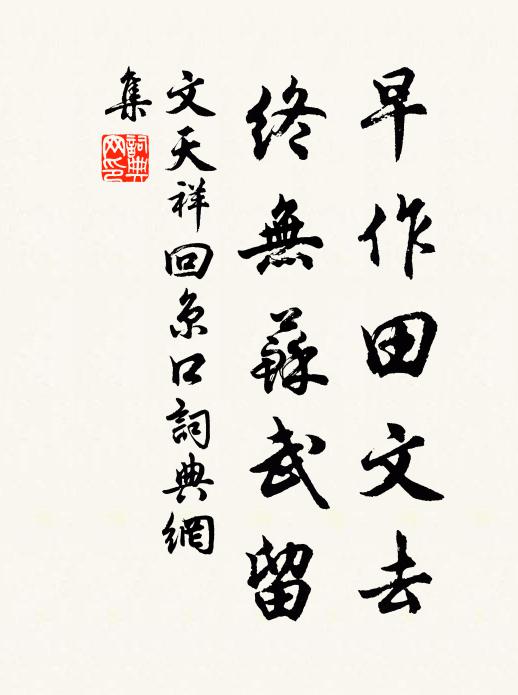 早作田文去
終無蘇武留
文天祥回京口詞典網
集
詞典網印